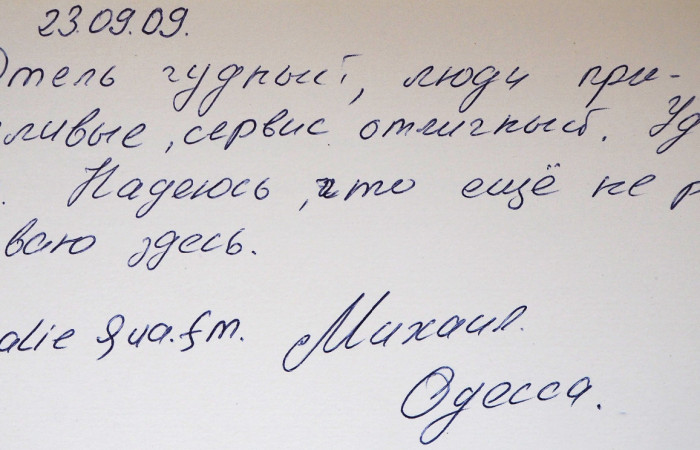 23.09.09.
Отель чудный, люди при-
ливые, сервис отличный. Уд
. Надеюсь, что ещё не р
ваю здесь.
alie Михаил.
Одесса.